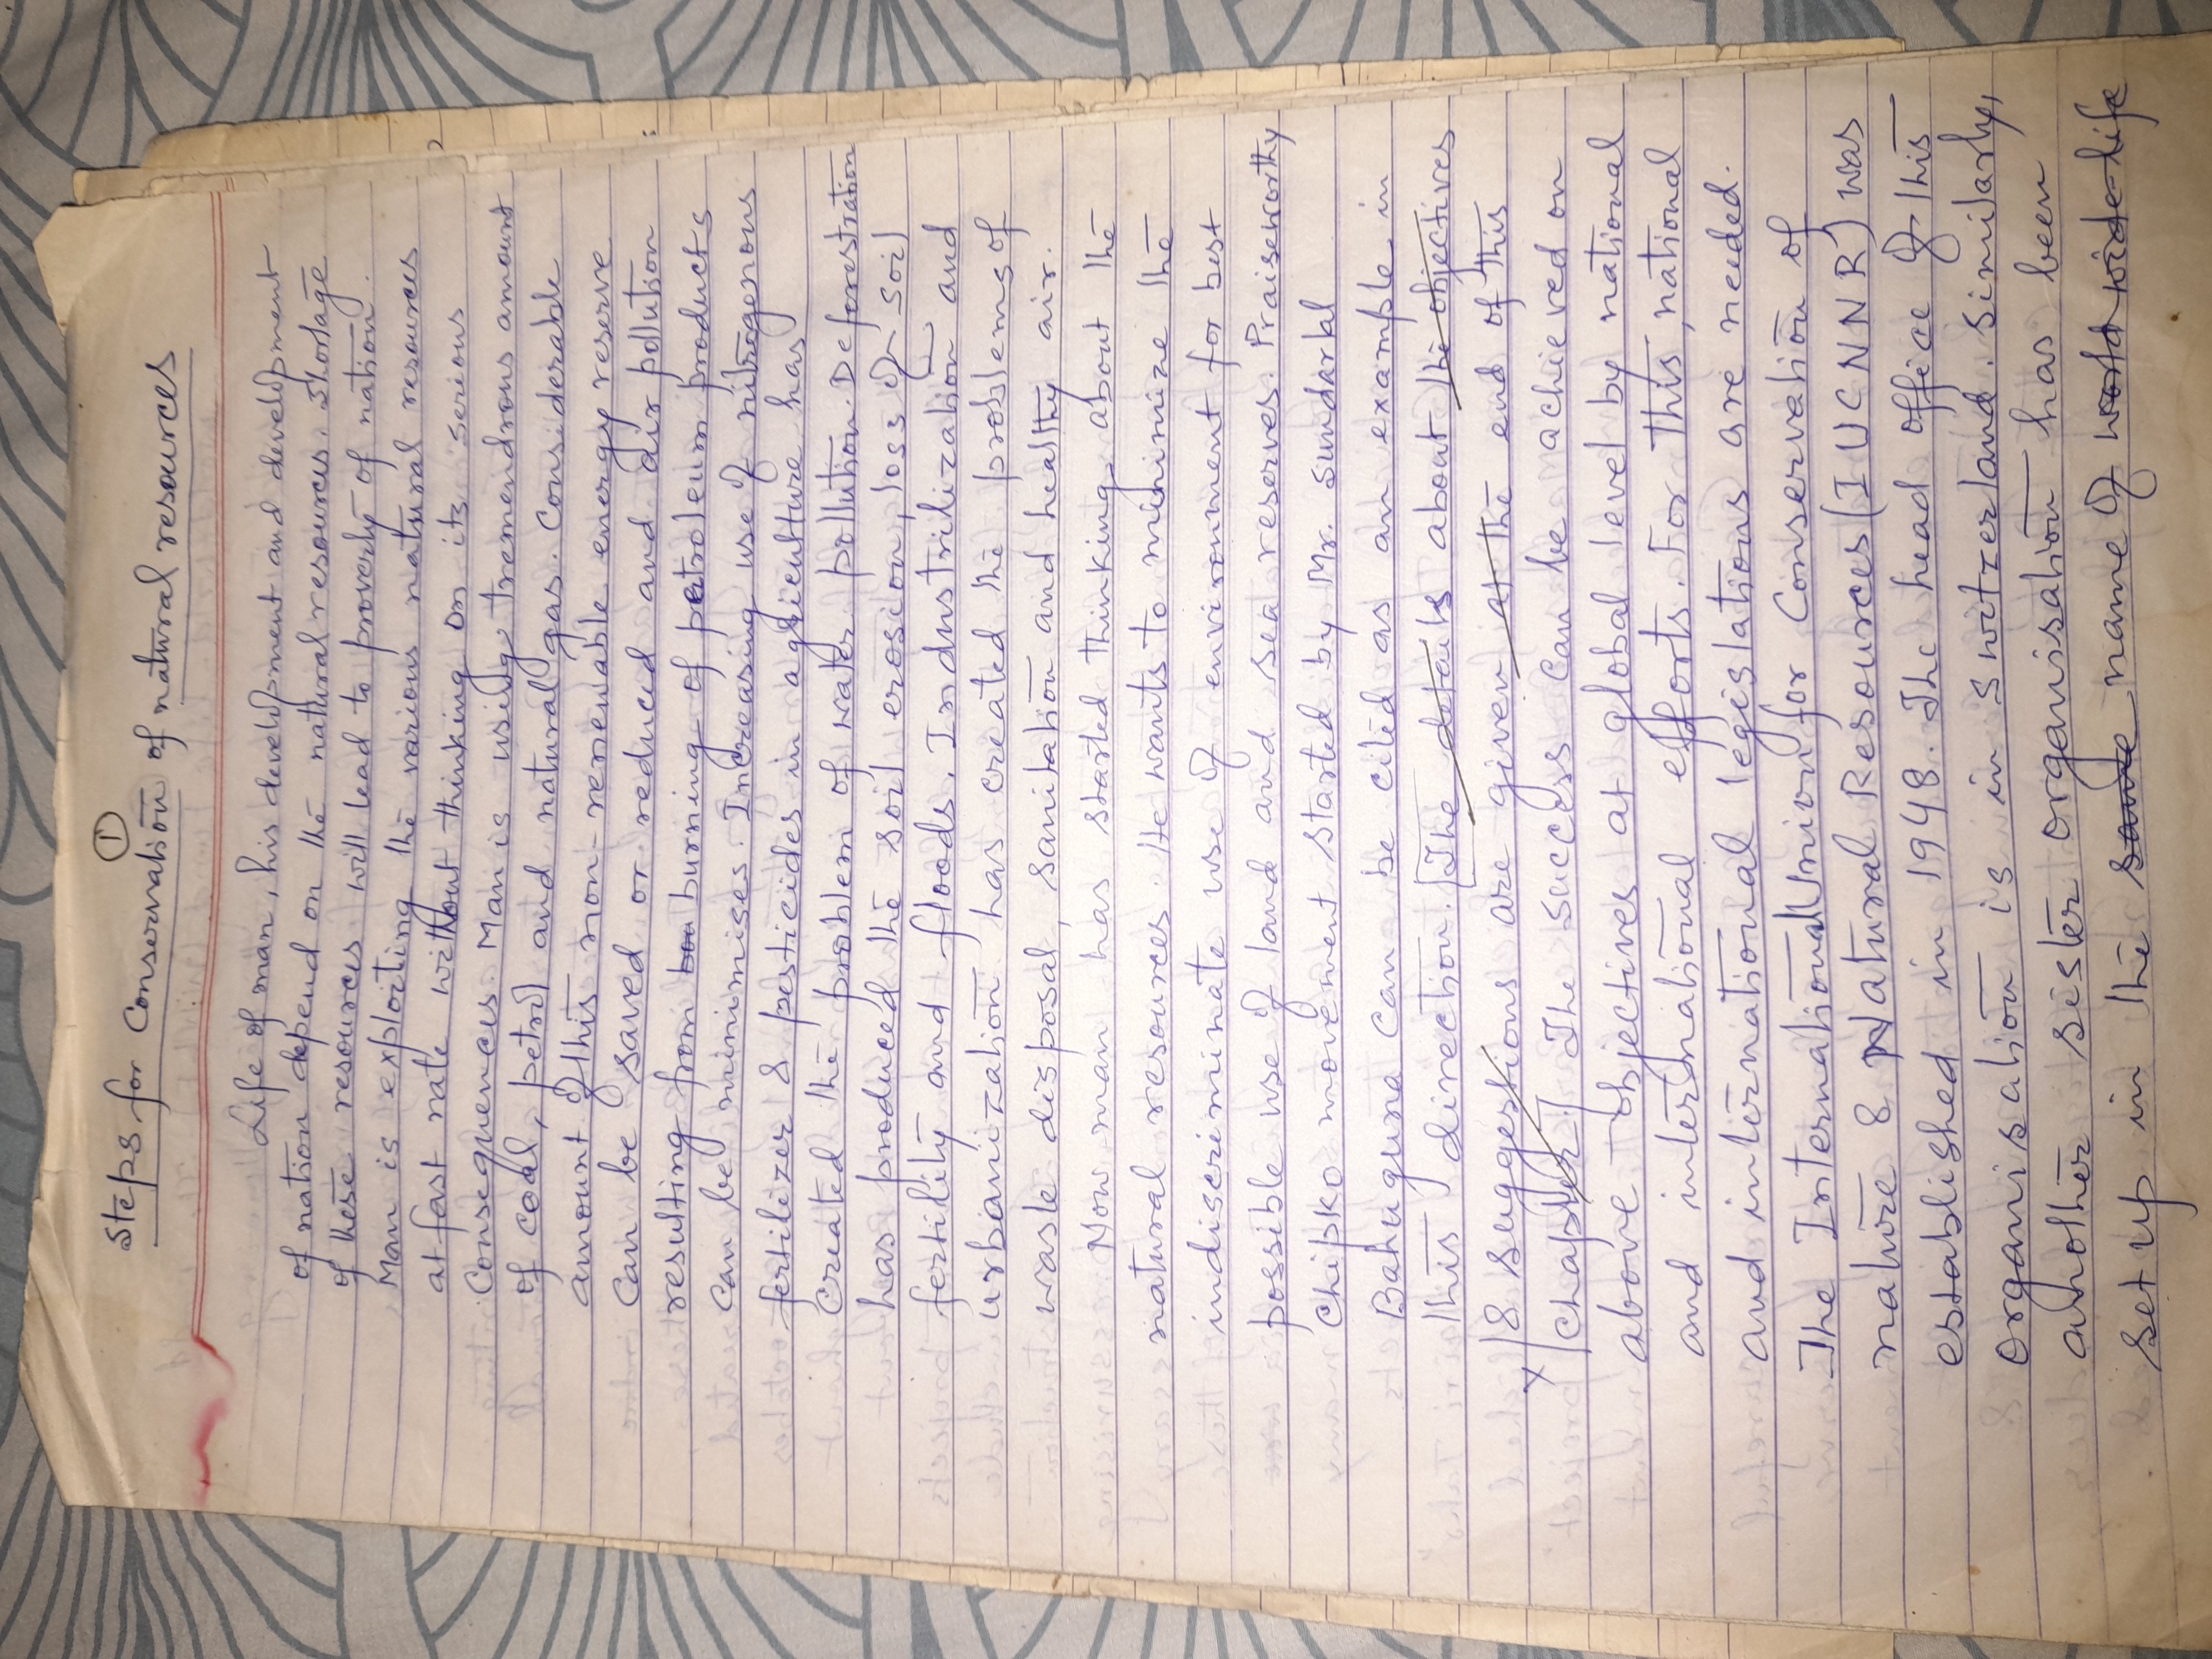 ①
Steps for Conservation of natural resources
Life of man, his development and development
of nation depend on the natural resources. Shortage
of these resources will lead to proverty of nation.
Man is exploiting the various natural resources
at fast rate without thinking on its serious
Consequences. Man is using tremendrous amount
of coal, petrol and natural gas. Considerable
amount of this non-renewable energy reserve
Can be saved or reduced and air pollution
resulting from burning of petroleum products
Can be minimises. Increasing use of nitrogenous
fertilizer & pesticides in agriculture has
Created the problem of water pollution. Deforestration
has produced the soil erosion, loss of soil
fertility and floods. Industrilization and
urbanization has created the problems of
waste disposal, sanitation and healthy air.
Now man has started thinking about the
natural resources. He wants to minimize the
indiscriminate use of environment for best
possible use of land and sea reserves. Praiseworthy
Chipko movement started by Mr. Sundarlal
Bahuguna Can be cited as an example in
this direction. [The details about the objectives
x & suggestions are given at the end of this
chapter] The success Can be achieved on
above objectives at global level by national
and international efforts. For this, national
and international legislations are needed.
The International Union for Conservation of
nature & Natural Resources (IUCNNR) was
established in 1948. The head office of this
organisation is in Switzerland. Similarly,
another sister organisation has been
set up in the same name of world wide life